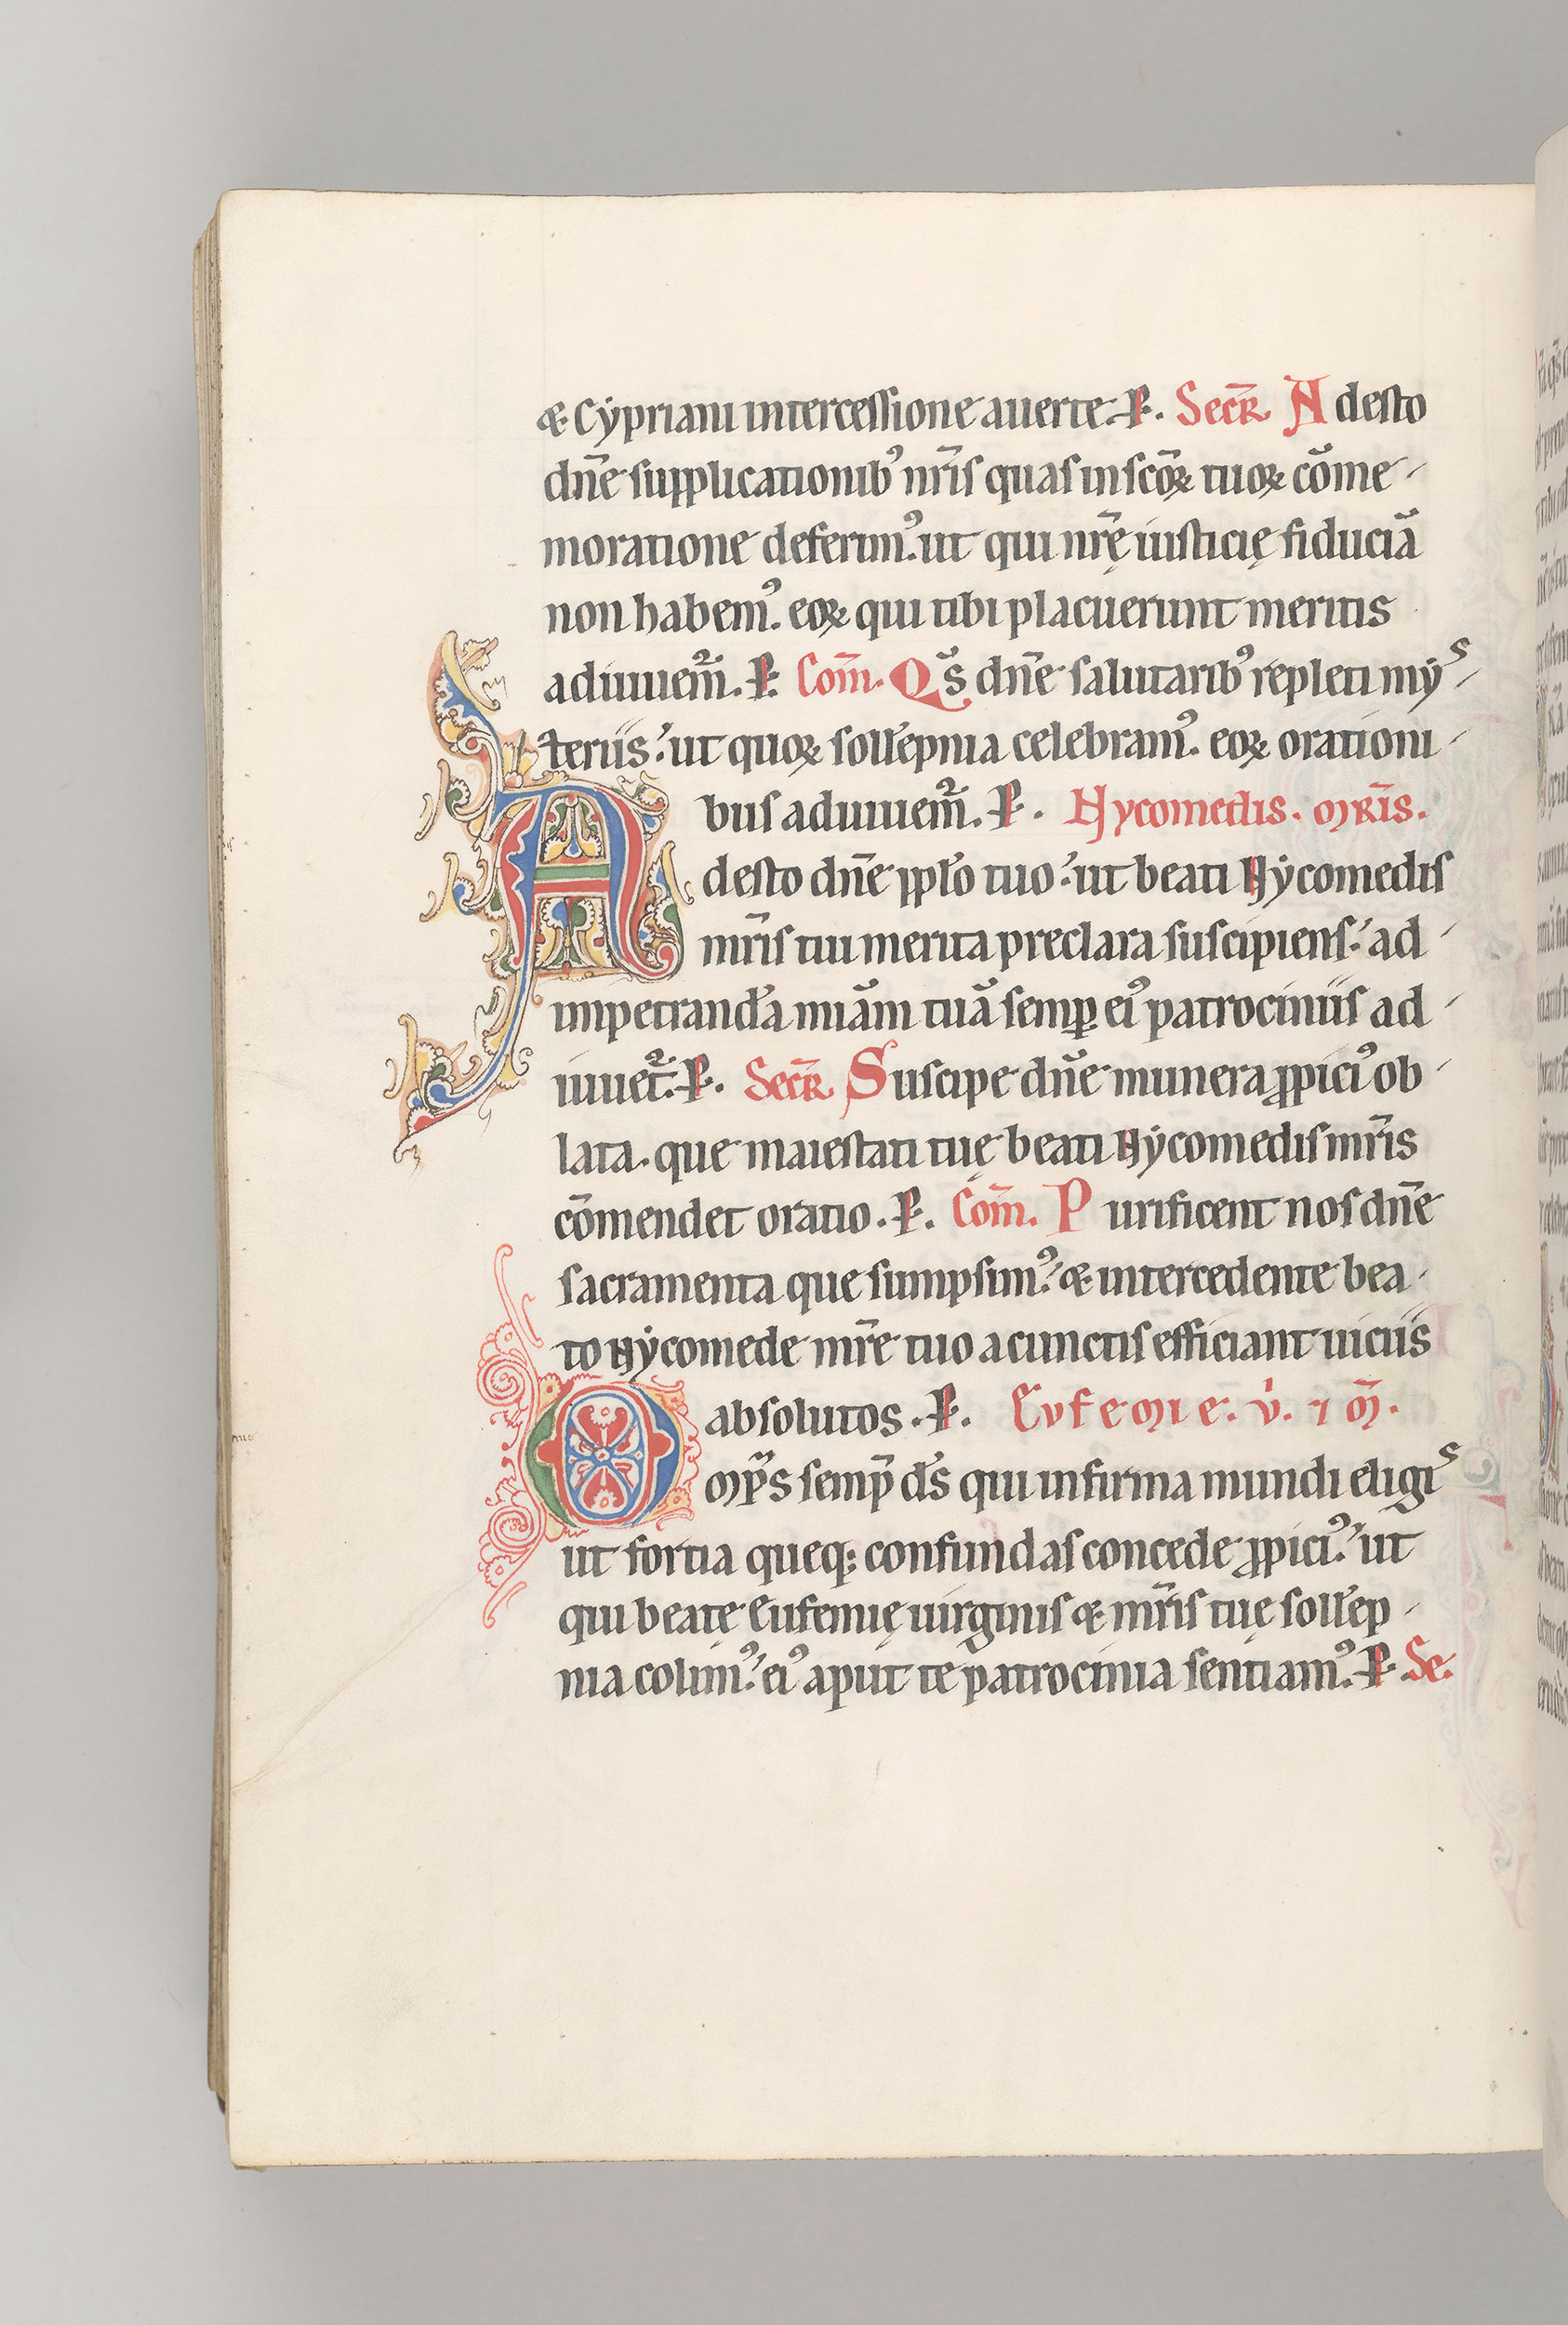 & Cẏpriani intercessione auerte. P. Secr̄ Adesto
dn̄e supplicationib’ nr̄is quas in sco̅ꝝ tuoꝝ co̅me-
moratione deferim’. ut qui nr̄ę iusticię fiducia̅
non habem’. eoꝝ qui tibi placuerunt meritis
adiuuem̄. P. Com̄. Qs̄ dn̄e salutarib’ repleti mẏs-
teriis. ut quoꝝ soll'epnia celebram’. eoꝝ orationi-
bus adiuuem̄. P. Nycomedis. mr̄is.
Adesto dn̄e ppl'o tuo. ut beati Nẏcomedis
mr̄is tui merita preclara suscipiens. ad-
impetrand'a mia̅m tua̅ semꝑ ei’ patrociniis ad-
iuuet̄. P. Secr̄ Suscipe dn̄e munera ꝓpici’ ob-
lata. que maiestati tuę beati Nẏcomedis mr̄is
co̅mendet oratio. P. Com̄. Purificent nos dn̄e
sacramenta que sumpsim’. & intercedente bea-
to Nẏcomede mr̄e tuo a cunctis efficiant uiciis
absolutos. P. Eufemie. v. ⁊ m̄.
Omp̄s semp̄ ds̄ qui infirma mundi eligis
ut fortia queq; confundas concede ꝓpici’. ut
qui beatę Eufemię uirginis & mr̄is tuę soll'ep-
nia colim’. ei’ aput te patrocinia sentiam’. P. Se.